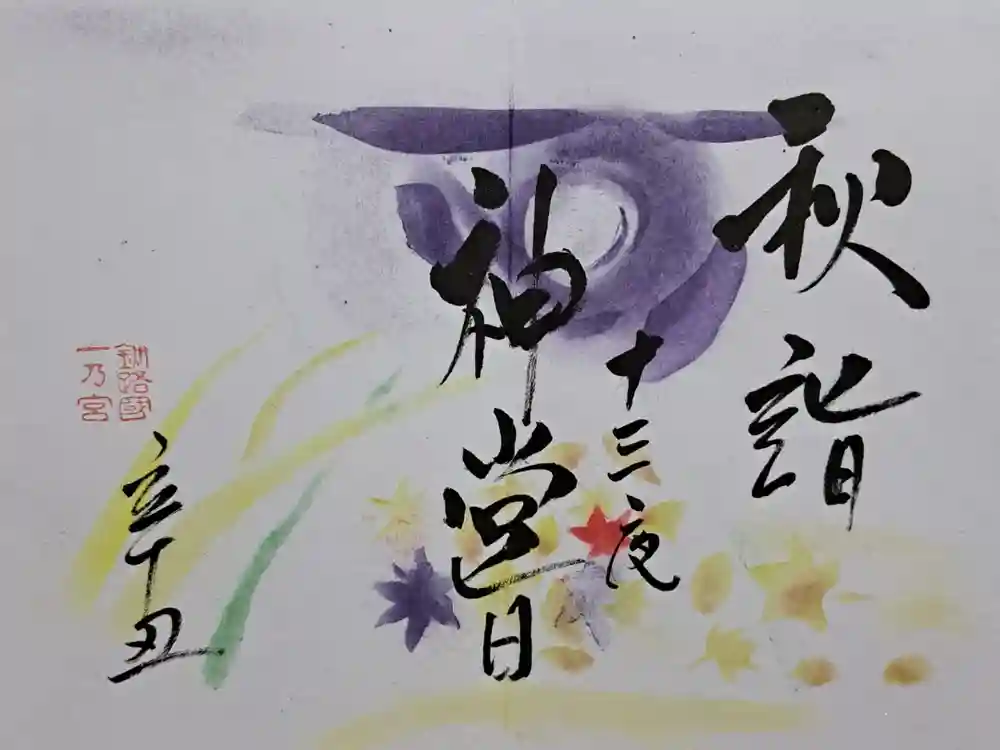 秋詣
十三夜
神嘗
辛丑
釧路國
一乃宮